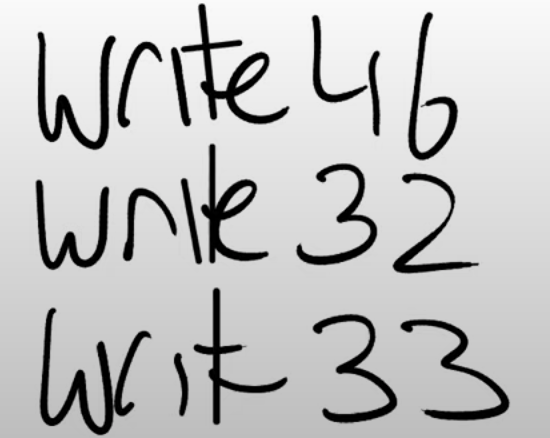 Write 46
Write 32
Write 33